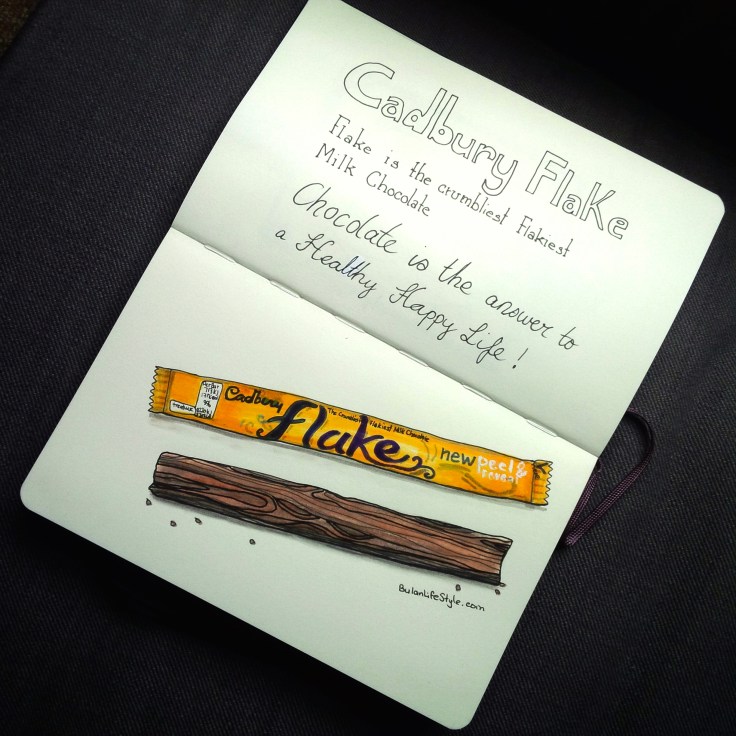 Cadbury Flake
Flake is the crumbliest Flakiest
Milk Chocolate
Chocolate is the answer to
a Healthy Happy Life!
Cadbury
The Crumbliest Flakiest Milk Chocolate
flake
new peel &
reveal
BulanLifeStyle.com